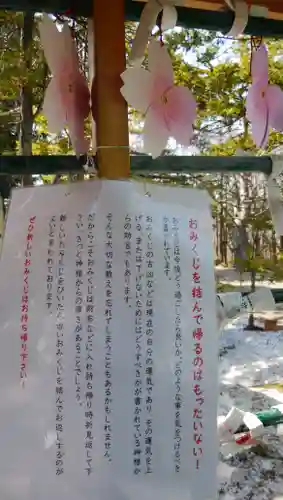 おみくじを結んで帰るのはもったいない!
おみくじは今後どう過ごしたら良いか、どのような事を気をつけるべきか
が書かれています。
おみくじの吉凶などは現在の自分の運気であり、その運気を上
げる、または下げないためにはどうすべきかが書かれている神様か
らの助言でもあります。
そんな大切な教えを忘れてしまうこともあるかもしれません。
だからこそおみくじは財布などに入れ持ち帰り時折見返して下
さい。きっと神様からの気づきがあることでしょう。
新しいおみくじをひいたら、古いおみくじを結んでお返しするのが
よいと言われております。
ぜひ新しいおみくじはお持ち帰り下さい!